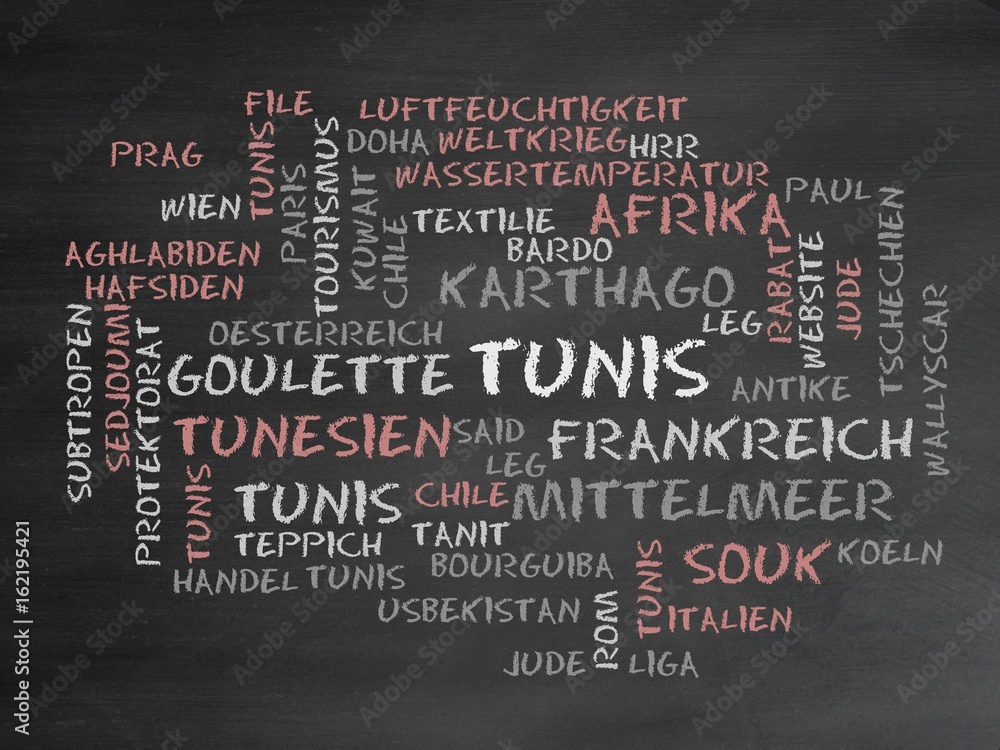 FILE
LUFTFEUCHTIGKEIT
PRAG
TUNIS
TOURISMUS
DOHA
WELTKRIEG
HRR
PARIS
KUWAIT
WASSERTEMPERATUR
WIEN
CHILE
TEXTILIE
AFRIKA
PAUL
AGHLABIDEN
BARDO
RABAT
WEBSITE
JUDE
TSCHECHIEN
HAFSIDEN
KARTHAGO
SUBTROPEN
SEDJOUMI
PROTEKTORAT
OESTERREICH
LEG
WALLYSCAR
GOULETTE
TUNIS
ANTIKE
TUNESIEN
SAID
FRANKREICH
LEG
TUNIS
TUNIS
CHILE
MITTELMEER
TEPPICH
TANIT
SOUK
KOELN
HANDEL
TUNIS
BOURGUIBA
TUNIS
USBEKISTAN
ROM
ITALIEN
JUDE
LIGA
Adobe Stock | #162195421